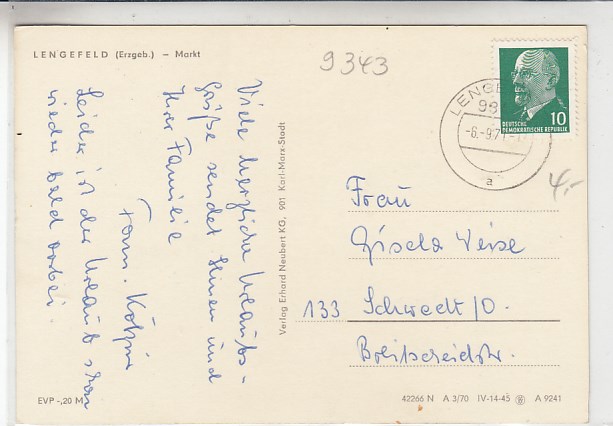 LENGEFELD (Erzgeb.) – Markt
9343
Viele herzliche Urlaubs-
grüße sendet Ihnen und
Ihrer Familie
Fam.
Leider ist der Urlaub schon
wieder bald vorbei.
Verlag Erhard Neubert KG, 901 Karl-Marx-Stadt
LENGE
-6.-9.71
a
10
DEUTSCHE
DEMOKRATISCHE REPUBLIK
4,-
Frau
Gisela Weise
133 Schwedt/O.
Breitscheidstr.
EVP -,20 M
42266 N A 3/70 IV-14-45 A 9241